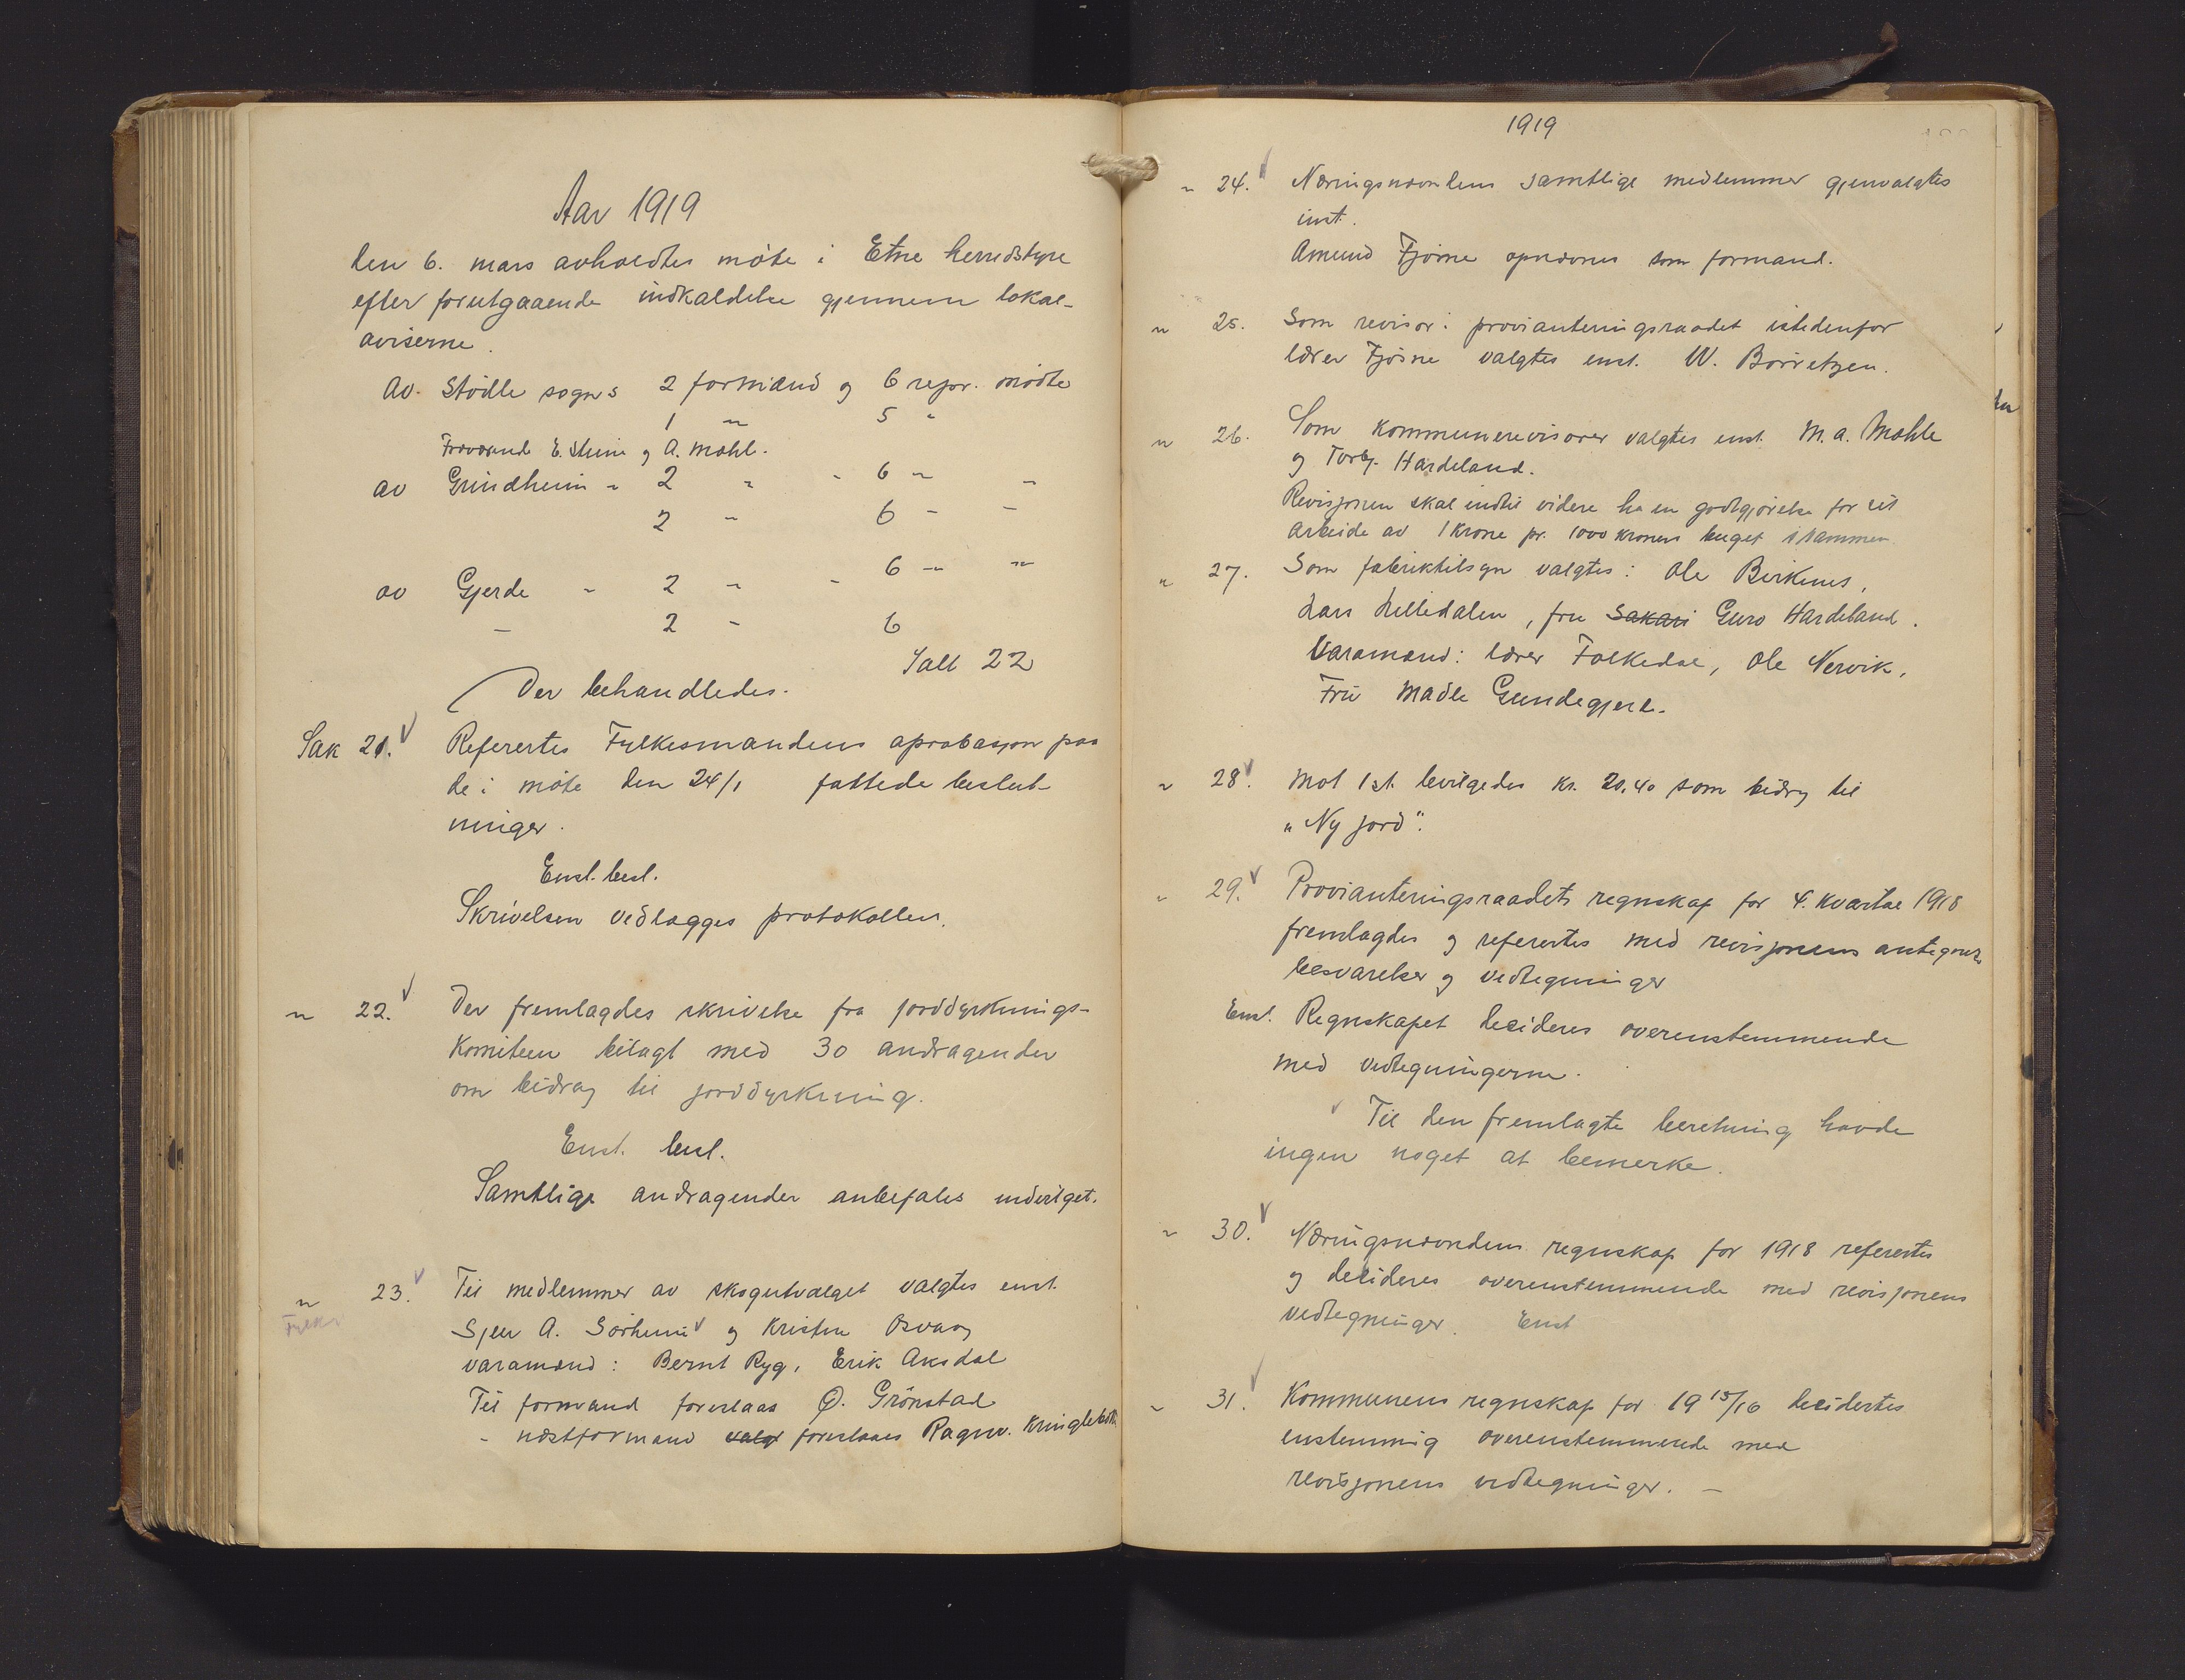 Aar 1919
den 6. mars avholdtes møte i Etne herredstyre
efter forutgaaende indkaldelse gjennem lokal-
aviserne.
Av Stödle sogns 2 formænd og 6 repr. mødte
1 " 5 "
Fraværende E. Steine og A. Mæhl.
av Grindheim " 2 " " 6 " "
2 " 6 " "
av Gjerde " 2 " " 6 " "
" 2 " 6
Ialt 22
Der behandledes.
Sak 21. Referertes Fylkesmandens aprobasjon paa
de i møte den 24/1 fattede beslut-
ninger.
Enst. besl.
Skrivelsen vedlægges protokollen.
" 22. Der fremlagdes skrivelse fra jorddyrknings-
komiteen bilagt med 30 andragender
om bidrag til jorddyrkning.
Enst. besl.
Samtlige andragender anbefales indvilget.
" 23. Til medlemmer av skogutvalget valgtes enst.
Fylke
Sjur A. Sörheim og Kristen Osvaag
varamænd: Bernt Ryg, Erik Aksdal
Til formand foreslaas Ø. Grönstad
" næstformand valgt foreslaaes Ragnv. Kringlebotn
1919
" 24. Næringsnævndens samtlige medlemmer gjenvalgtes
enst.
Amund Fjøsne opnævnes som formand.
" 25. Som revisor i provianteringsraadet istedenfor
lærer Fjøsne valgtes enst. W. Børretzen.
" 26. Som kommunerevisorer valgtes enst. M. A. Mæhle
og Torbj. Hardeland.
Revisjonen skal indtil videre ha en godtgjørelse for sit
arbeide av 1 krone pr. 1000 kroners budget istammen.
" 27. Som fabriktilsyn valgtes: Ole Birkenes,
Lars Lilledalen, fru Sakari Guro Hardeland.
Varamænd: lærer Folkedal, Ole Nervik,
Fru Madle Gundegjerd.
" 28. Mot 1 st. bevilgedes kr. 20,40 som bidrag til
"Ny jord".
" 29. Provianteringsraadets regnskap for 4. kvartal 1918
fremlagdes og referertes med revisjonens antegnelser
besvarelser og vedtegninger
Enst. Regnskapet decideres overenstemmende
med vedtegningerne.
Til den fremlagte beretning havde
ingen noget at bemerke.
" 30. Næringsnævndens regnskap for 1918 referertes
og decideres overenstemmende med revisjonens
vedtegninger. Enst
" 31. Kommunens regnskap for 19 15/16 decidertes
enstemmig overenstemmende med
revisjonens vedtegninger. –